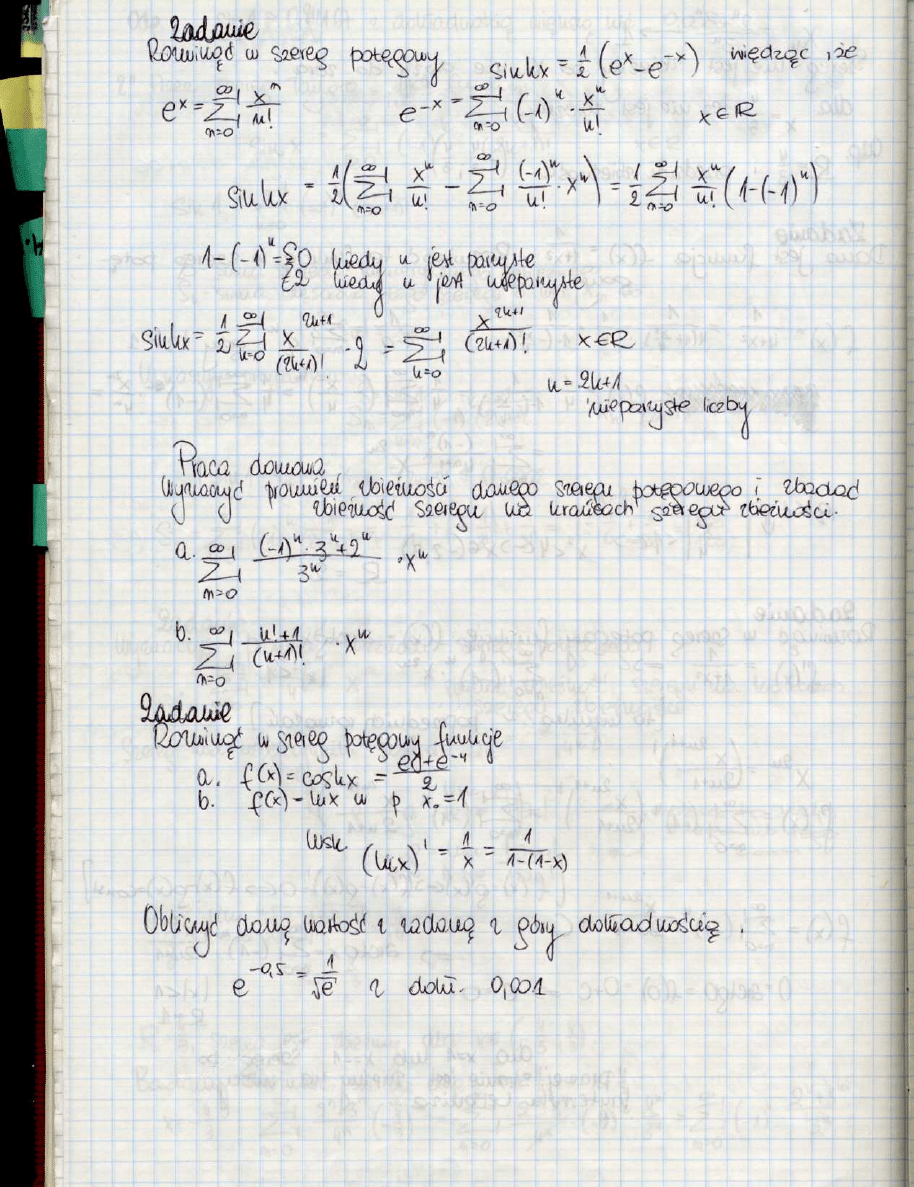 Zadanie
Rozwinąć w szereg potęgowy sinhx = 1/2 (e^x - e^-x) wiedząc, że
e^x = ∑_{n=0}^{∞} x^n/n! e^-x = ∑_{n=0}^{∞} (-1)^n · x^n/n! x∈R
sinhx = 1/2 (∑_{n=0}^{∞} x^n/n! - ∑_{n=0}^{∞} (-1)^n/n! · x^n) = 1/2 ∑_{n=0}^{∞} x^n/n! (1-(-1)^n)
1-(-1)^n = { 0 kiedy n jest parzyste
{ 2 kiedy n jest nieparzyste
sinhx = 1/2 ∑_{k=0}^{∞} x^{2k+1}/(2k+1)! · 2 = ∑_{k=0}^{∞} x^{2k+1}/(2k+1)! x∈R
n = 2k+1
nieparzyste liczby
Praca domowa
Wyznaczyć promień zbieżności danego szeregu potęgowego i zbadać
zbieżność szeregu na krańcach szeregu zbieżności.
a. ∑_{n=0}^{∞} ((-1)^n · 3^n + 2^n)/3^n · x^n
b. ∑_{n=0}^{∞} (n!+1)/(n+1)! · x^n
Zadanie
Rozwinąć w szereg potęgowy funkcje
a. f(x) = coshx = (e^y + e^-y)/2
b. f(x) = lnx w p x₀ = 1
Wsk (lnx)' = 1/x = 1/(1-(1-x))
Obliczyć daną wartość z zadaną z góry dokładnością.
e^{-0,5} = 1/√e z dokł. 0,001